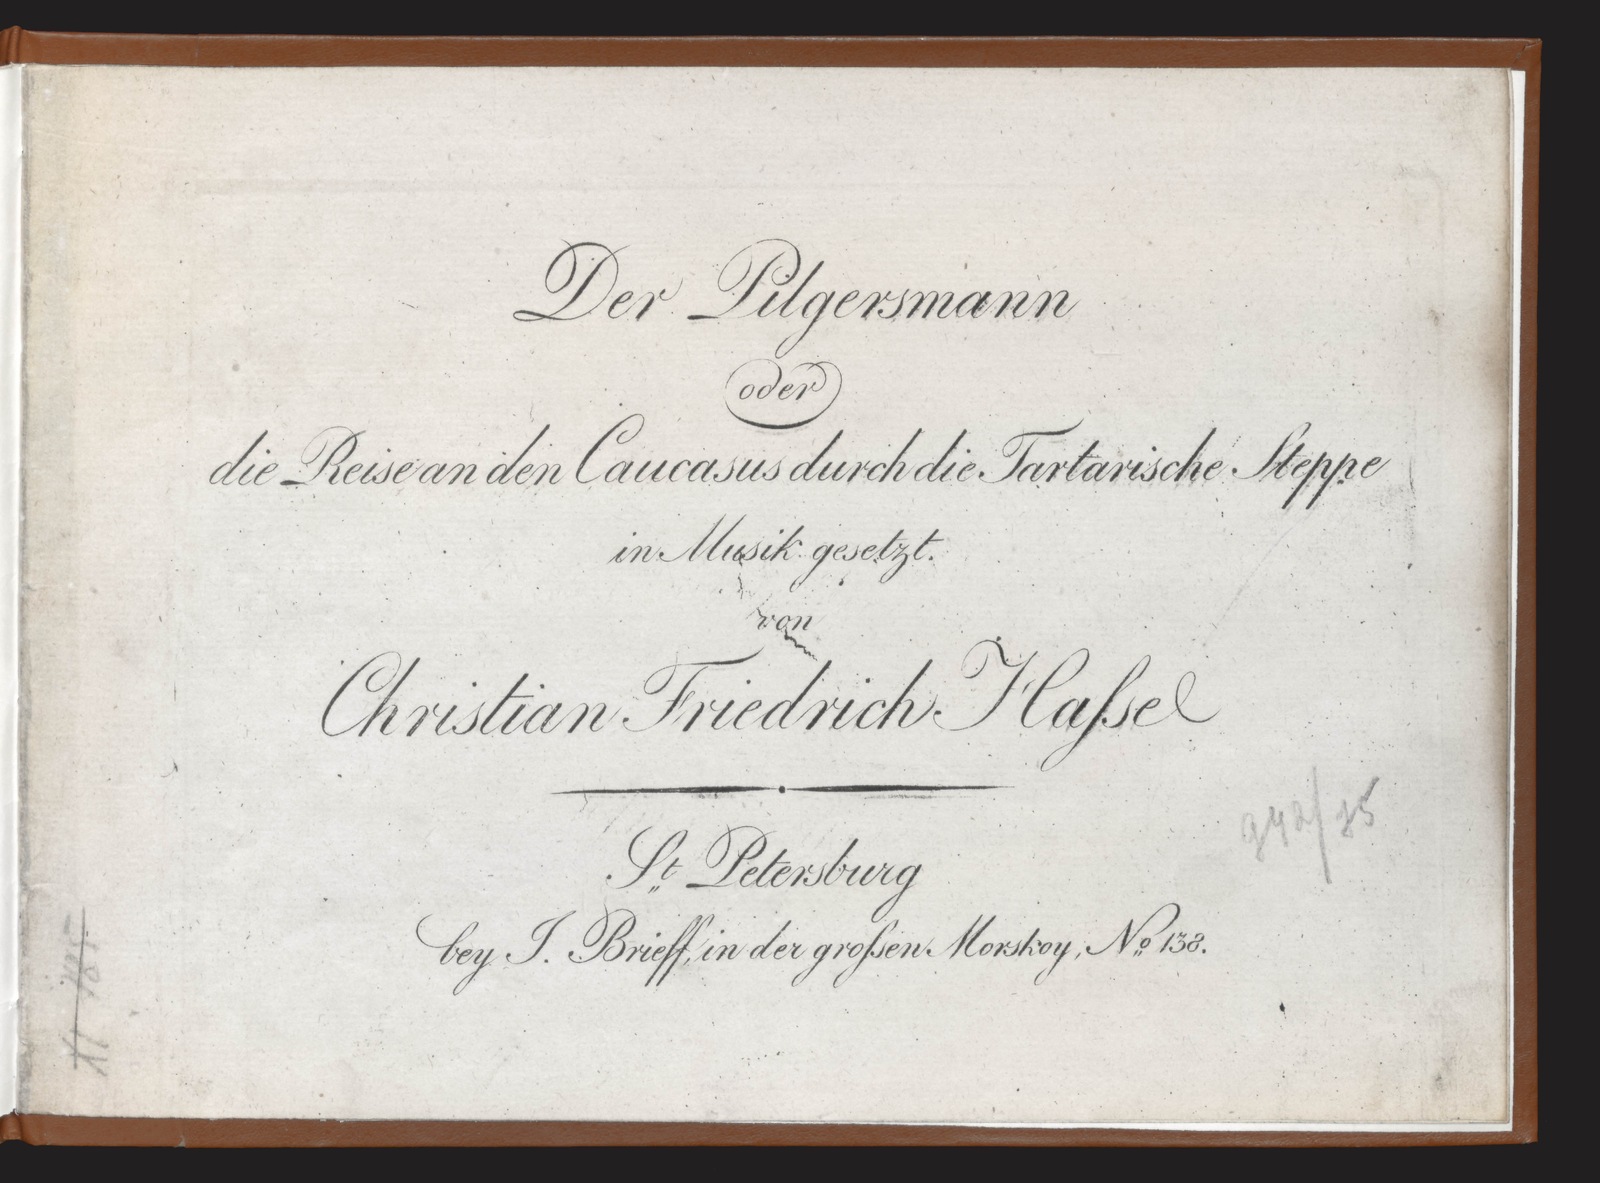 Der Pilgersmann
oder
die Reise an den Caucasus durch die Tartarische Steppe
in Musik gesetzt.
von
Christian Friedrich Haſsel
St. Petersburg
bey J. Brieff, in der groſsen Morskoy, No 138.
942/35